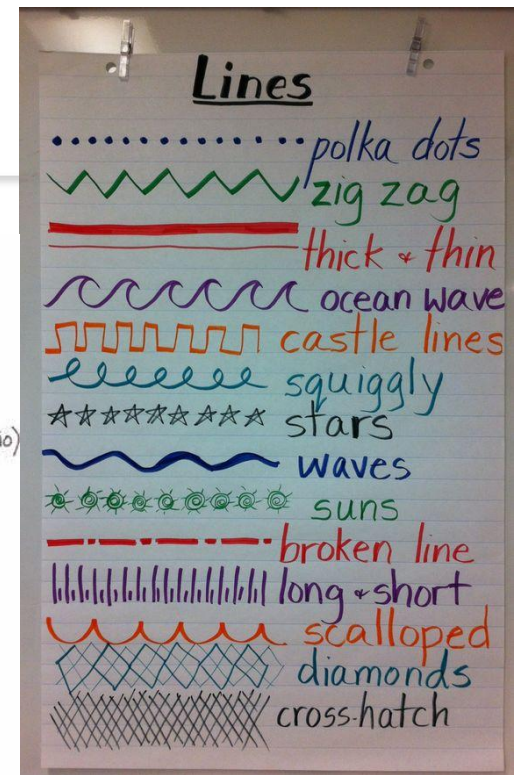 Lines
polka dots
zig zag
thick & thin
ocean wave
castle lines
squiggly
stars
waves
suns
broken line
long & short
scalloped
diamonds
cross-hatch